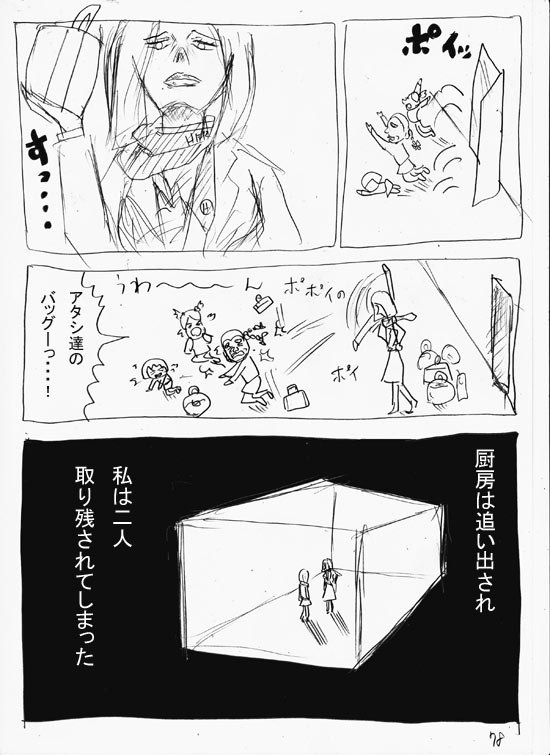 ポイッ
すっ・・・・
うわ〜〜〜ん
ポポイの
ポイ
アタシ達の
バッグーっ・・・・!
厨房は追い出され
私は二人
取り残されてしまった
78